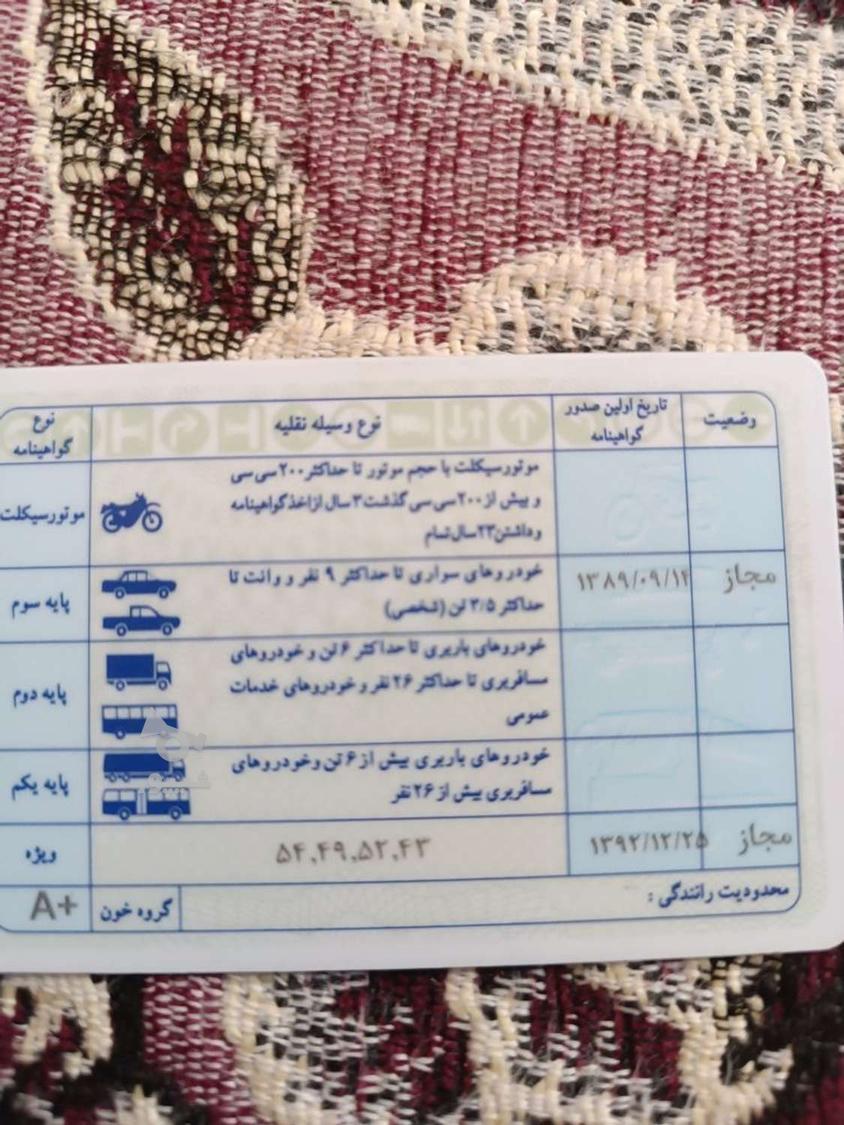 وضعیت
تاریخ اولین صدور
گواهینامه
نوع وسیله نقلیه
نوع
گواهینامه
موتورسیکلت با حجم موتور تا حداکثر ۲۰۰ سی سی
و بیش از ۲۰۰ سی سی گذشت ۳ سال از اخذ گواهینامه
و داشتن ۲۳ سال تمام
موتورسیکلت
مجاز
۱۳۸۹/۰۹/۱۴
خودروهای سواری تا حداکثر ۹ نفر و وانت تا
حداکثر ۳/۵ تن (شخصی)
پایه سوم
خودروهای باربری تا حداکثر ۶ تن و خودروهای
مسافربری تا حداکثر ۲۶ نفر و خودروهای خدمات
عمومی
پایه دوم
خودروهای باربری بیش از ۶ تن و خودروهای
مسافربری بیش از ۲۶ نفر
پایه یکم
مجاز
۱۳۹۲/۱۲/۲۵
۵۴,۴۹,۵۲,۴۳
ویژه
محدودیت رانندگی :
گروه خون
A+